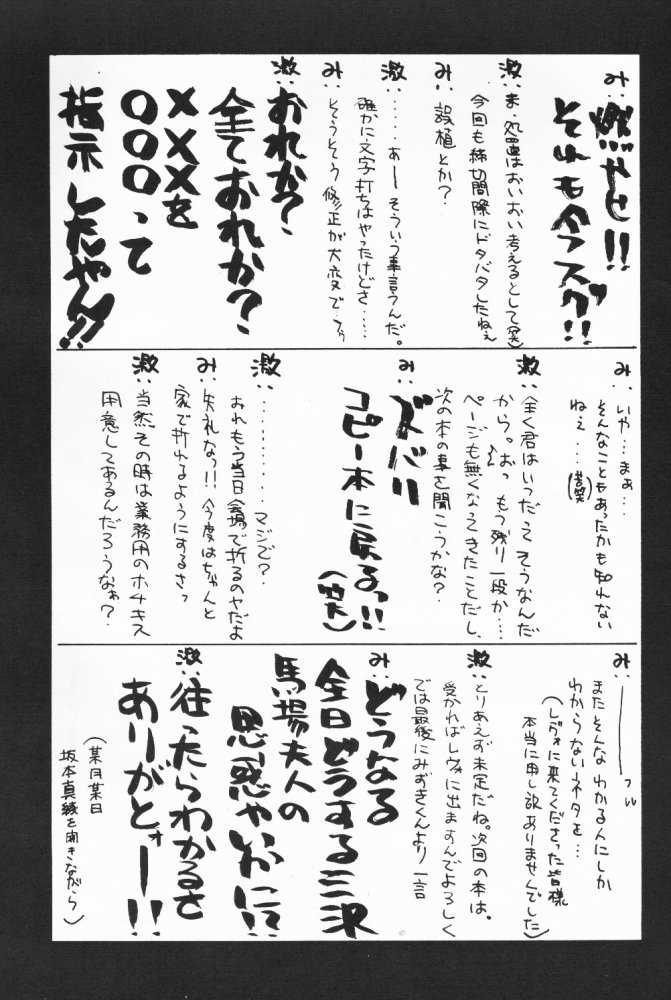 み：燃やせ!!
それも今スグ!!
激：ま、処置はおいおい考えるとして(笑)
今回も締切間際にドタバタしたねぇ
み：誤植とか？
激：……あーそういう事言うんだ。
確かに文字打ちはやったけどさ……
み：そうそう修正が大変で…
激：おれか？
全ておれか？
×××を
○○○って
指示したやん!!
み：いや…まぁ…
そんなこともあったかも知れない
ねぇ…(苦笑)
激：全く君はいつだってそうなんだ
から。おっもう残り一段か……
ページも無くなってきたことだし、
次の本の事を聞こうかな？
み：ズバリ
コピー本に戻るっ!!
激：…………マジで？
おれもう当日会場で折るのやだよ
み：失礼なっ!!今度はちゃんと
家で折れるようにするさっ
激：当然その時は業務用のホチキス
用意してあるんだろうなぁ？
み：――フルル
またそんなわかる人にしか
わからないネタを…
(レヴォに来てくださった皆様
本当に申し訳ありませんでした)
激：とりあえず未定だね。次回の本は。
受かればレヴォに出ますんでよろしく
では最後にみずきくんより一言
み：どうなる
全日どうする三沢
馬場夫人の
思惑やいかに!?
激：往ったらわかるさ
ありがとォー!!
(某月某日
坂本真綾を聞きながら)